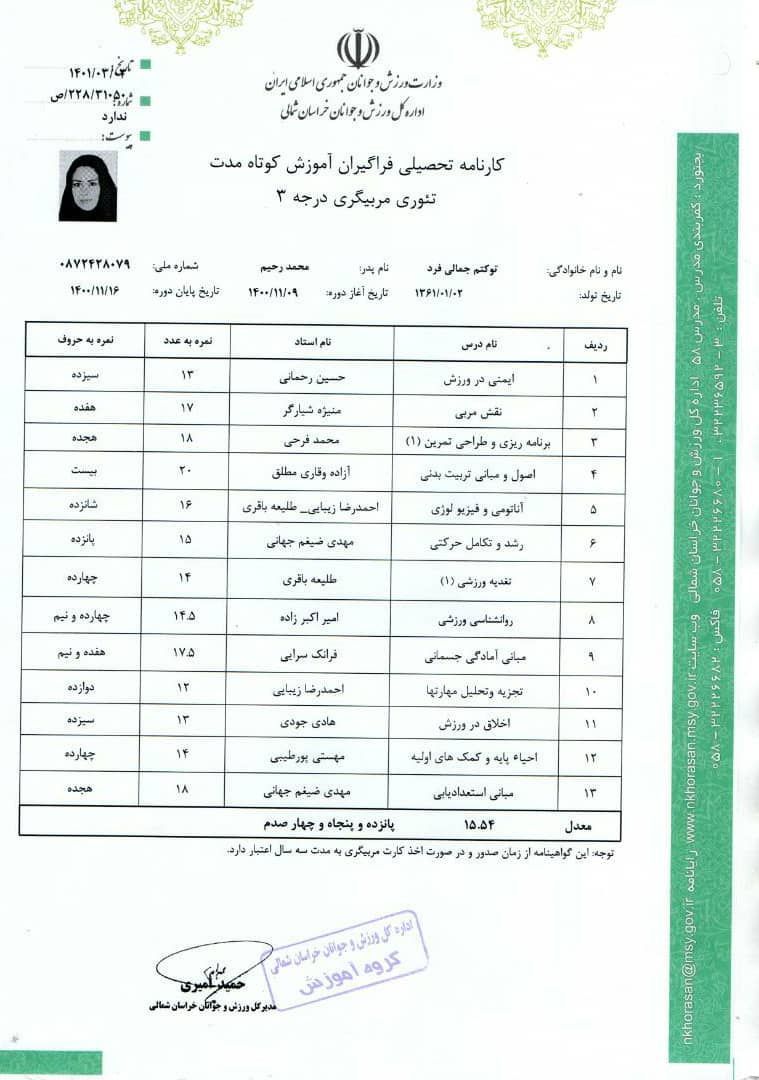 تاریخ: ۱۴۰۱/۰۳/
شماره: ۲۲۸/۳۱۰۵۰/ص
ندارد
پیوست:
وزارت ورزش و جوانان جمهوری اسلامی ایران
اداره کل ورزش و جوانان خراسان شمالی
کارنامه تحصیلی فراگیران آموزش کوتاه مدت
تئوری مربیگری درجه ۳
نام و نام خانوادگی: توکتم جمالی فرد نام پدر: محمد رحیم شماره ملی: ۰۸۷۲۴۲۸۰۷۹
تاریخ تولد: ۱۳۶۱/۰۱/۰۲ تاریخ آغاز دوره: ۱۴۰۰/۱۱/۰۹ تاریخ پایان دوره: ۱۴۰۰/۱۱/۱۶
ردیف نام درس نام استاد نمره به عدد نمره به حروف
۱ ایمنی در ورزش حسین رحمانی ۱۳ سیزده
۲ نقش مربی منیژه شیارگر ۱۷ هفده
۳ برنامه ریزی و طراحی تمرین (۱) محمد فرحی ۱۸ هجده
۴ اصول و مبانی تربیت بدنی آزاده وقاری مطلق ۲۰ بیست
۵ آناتومی و فیزیو لوژی احمدرضا زیبایی_ طلیعه باقری ۱۶ شانزده
۶ رشد و تکامل حرکتی مهدی ضیغم جهانی ۱۵ پانزده
۷ تغدیه ورزشی (۱) طلیعه باقری ۱۴ چهارده
۸ روانشناسی ورزشی امیر اکبر زاده ۱۴.۵ چهارده و نیم
۹ مبانی آمادگی جسمانی فرانک سرایی ۱۷.۵ هفده و نیم
۱۰ تجزیه وتحلیل مهارتها احمدرضا زیبایی ۱۲ دوازده
۱۱ اخلاق در ورزش هادی جودی ۱۳ سیزده
۱۲ احیاء پایه و کمک های اولیه مهستی پورطیبی ۱۴ چهارده
۱۳ مبانی استعدادیابی مهدی ضیغم جهانی ۱۸ هجده
معدل ۱۵.۵۴ پانزده و پنجاه و چهار صدم
توجه: این گواهینامه از زمان صدور و در صورت اخذ کارت مربیگری به مدت سه سال اعتبار دارد.
اداره کل ورزش و جوانان خراسان شمالی
گروه آموزش
حمید امیری
مدیرکل ورزش و جوانان خراسان شمالی
بجنورد : کمربندی مدرس ، مدرس ۵۸ اداره کل ورزش و جوانان خراسان شمالی وب سایت www.nkhorasan.msy.gov.ir رایانامه nkhorasan@msy.gov.ir
تلفن : ۳ - ۳۲۲۳۶۵۹۲ ، ۱ - ۳۲۲۲۶۶۸۰ - ۰۵۸ فاکس : ۳۲۲۲۶۶۸۲ - ۰۵۸